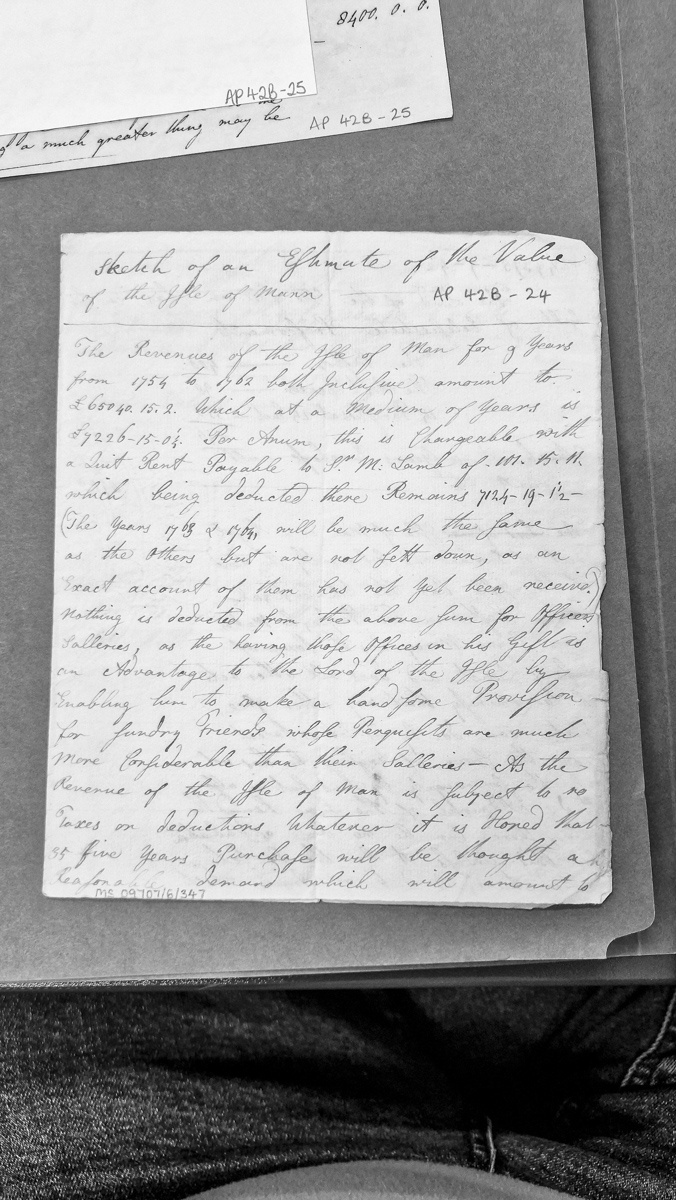 8400. 0. 0.
AP 42B-25
a much greater thing may be
AP 42B-25
Sketch of an Estimate of the Value
of the Isle of Mann
AP 42B-24
The Revenues of the Isle of Man for 9 Years
from 1754 to 1762 both Inclusive amount to
£65040.15.2. Which at a Medium of Years is
£7226-15-0½. Per Anum, this is Chargeable with
a Quit Rent Payable to Sr. M: Lamb of 101. 15. 11.
which being deducted there Remains 7124-19-1½-
(The Years 1763 & 1764, will be much the same
as the others but are not sett down, as an
Exact account of them has not yet been received.)
Nothing is deducted from the above sum for Officers
Salleries, as the having those Offices in his Gift is
an Advantage to the Lord of the Isle by
Enabling him to make a handsome Provision
for sundry Friends whose Perquisits are much
more Considerable than their Salleries - As the
Revenue of the Isle of Man is subject to no
Taxes or deductions Whatever it is Hoped that
35 five Years Purchase will be thought a
Reasonable demand which will amount to
MS 09707/6/347